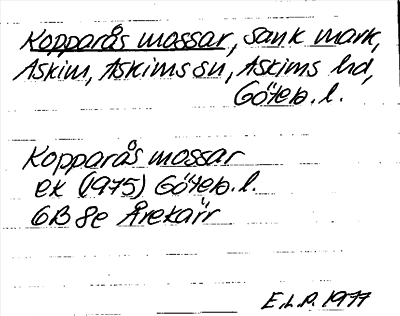 Kopparås mossar, sank mark,
Askim, Askims sn, Askims hd,
Göteb. l.
Kopparås mossar
ek (1975) Göteb. l.
6B 8e Årekärr
E.L.P. 1977